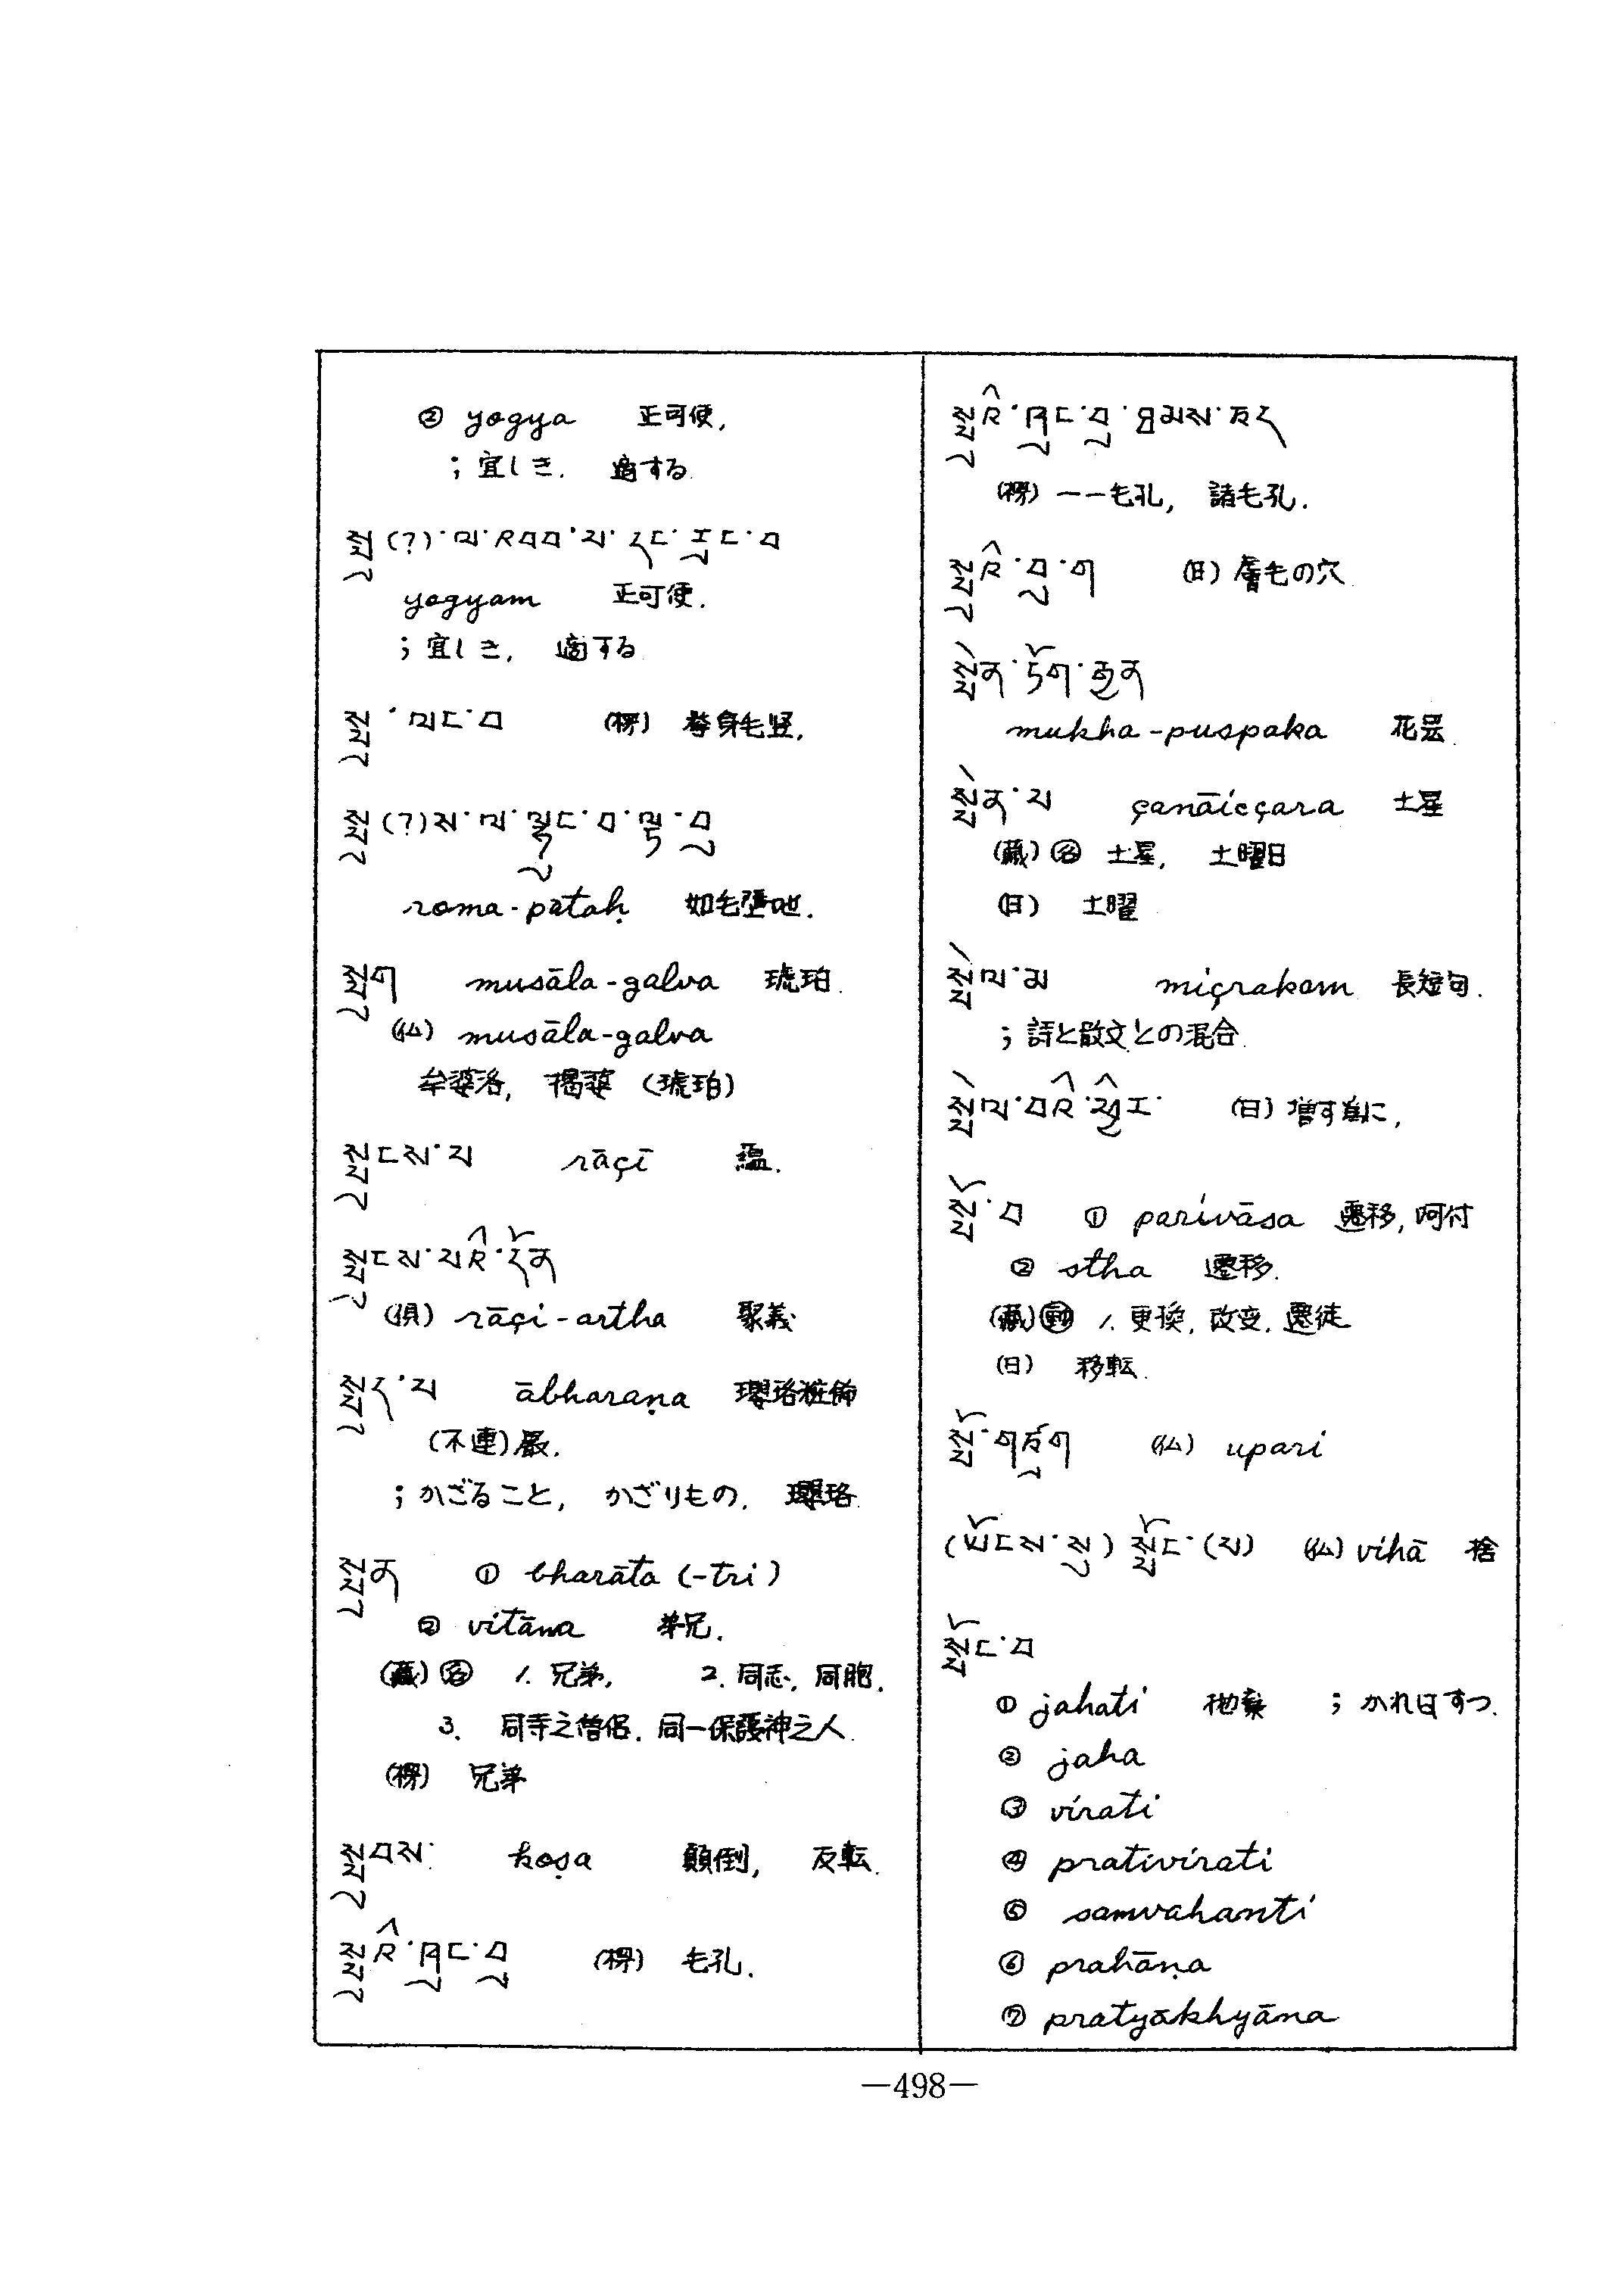 ② yogya 正可使,
; 宜しき. 適する.
སྤུ(?)་ལ་འབབ་པ་དང་ཇུང་བ
yogyam 正可使.
; 宜しき, 適する
སྤུ་ལང་བ (楞) 挙身毛竪,
roma-pataḥ
སྤུག musāla-galva 琥珀.
(仏) musāla-galva
牟婆洛, 掲婆 (琥珀)
སྤུངས་པ rāçī 蘊.
སྤུངས་པའི་དོན
(倶) rāçi-artha 聚義
སྤུད་པ ābharaṇa 瓔珞粧飾
(不連) 嚴.
; かざること, かざりもの. 瓔珞.
སྤུན ① bharāta (-tri)
② vitāna 弟兄.
(蔵) ㊔ 1. 兄弟, 2. 同志, 同胞.
3. 同寺之僧侶. 同一保護神之人.
(楞) 兄弟
སྤུབས་ koṣa 顛倒, 反転.
སྤུའི་ཁུང་བུ (楞) 毛孔.
སྤུའི་ཁུང་བུ་ཐམས་ཅད
(楞) 一一毛孔, 諸毛孔.
སྤུའི་བུ་ག (日) 膚毛の穴
སྤེན་ཏོག་རྒྱན
mukha-puspaka 花昙.
སྤེན་པ çanāicçara 土星
(蔵) ㊔ 土星, 土曜日
(日) 土曜
སྤེལ་མ miçrakam 長短句.
; 詩と散文との混合.
སྤེལ་བའི་སླད་ (日) 増す為に,
སྤོ་བ ① parivāsa 遷移, 呵付
② stha 遷移.
(蔵) 動 1. 更換, 改変. 遷徒
(日) 移転.
སྤོ་གཙུག (仏) upari
(ཡོངས་སུ) སྤོང་(པ) (仏) vihā 捨
སྤོང་བ
① jahati 抛棄 ; かれはすつ.
② jaha
③ virati
④ prativirati
⑤ samvahanti
⑥ prahāṇa
⑦ pratyākhyāna
—498—